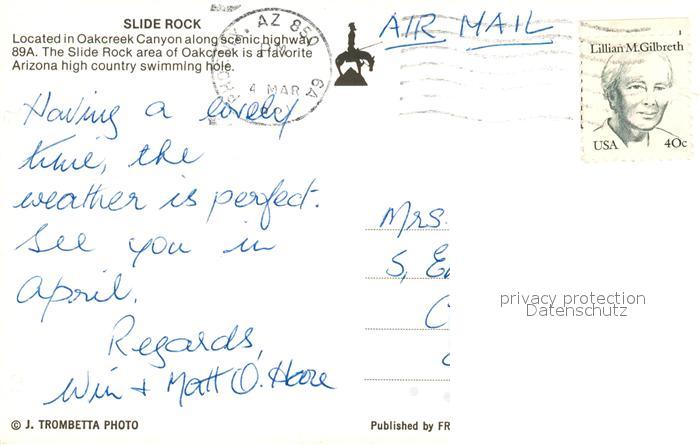 SLIDE ROCK
Located in Oakcreek Canyon along scenic highway
89A. The Slide Rock area of Oakcreek is a favorite
Arizona high country swimming hole.
AZ 850
PM
4 MAR
AIR MAIL
Lillian M. Gilbreth
USA 40c
Having a lovely
time, the
weather is perfect.
See you in
April.
Regards,
Win + Matt O. Hare
Mrs.
privacy protection
Datenschutz
© J. TROMBETTA PHOTO
Published by FR